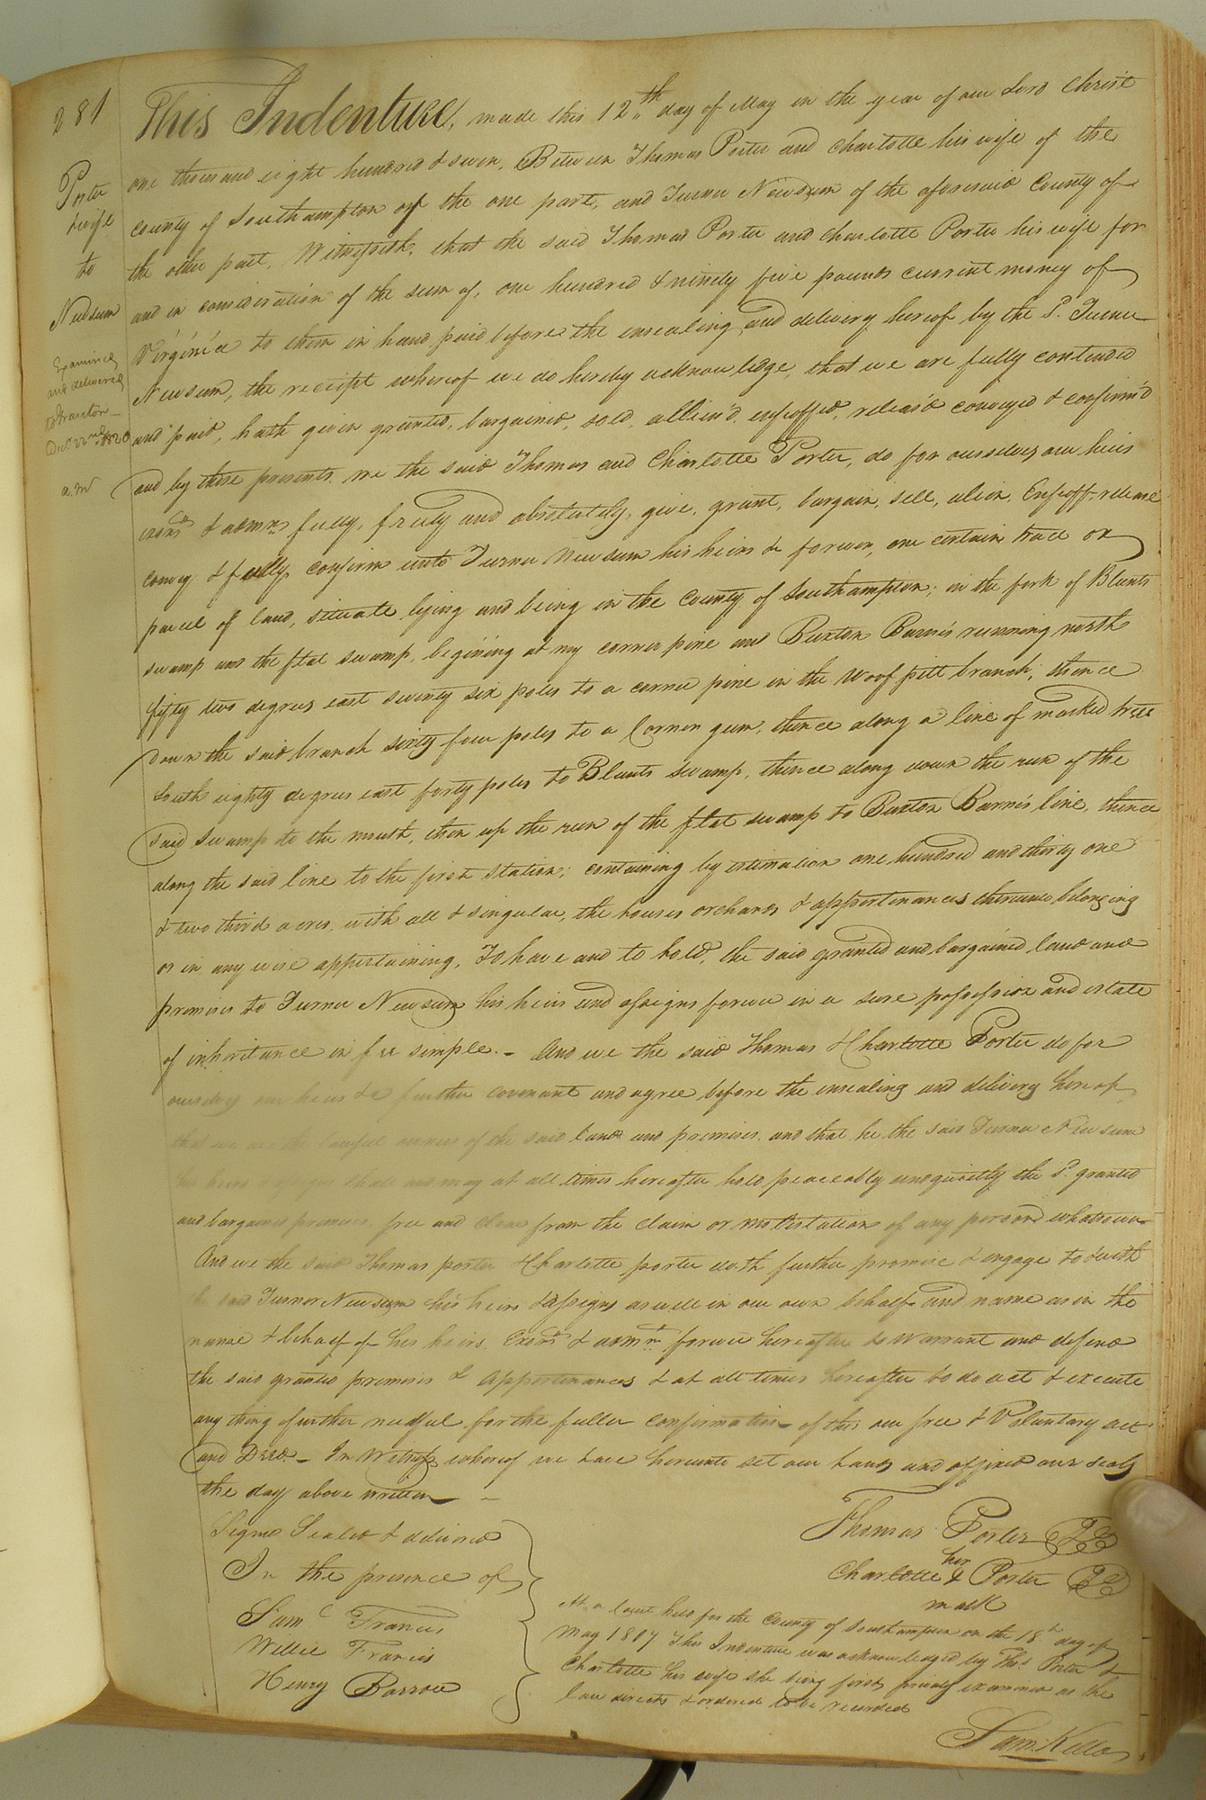 281
Porter
& wife
to
Newsum
Examined
and delivered
This Indenture, made this 12th day of May in the year of our Lord Christ
one thousand eight hundred & seven, Between Thomas Porter and Charlotte his wife of the
County of Southampton of the one part, and Turner Newsum of the aforesaid County of
the other part, Witnesseth, that the said Thomas Porter and Charlotte Porter his wife for
and in consideration of the sum of, one hundred & ninety five pounds current money of
Virginia to them in hand paid before the ensealing and delivery hereof by the Sd. Turner
Newsum, the receipt whereof we do hereby acknowledge that we are fully contented
and paid, hath given granted, bargained, sold, allien'd, enfeoffed, releas'd conveyed & confirm'd
and by these presents, we the said Thomas and Charlotte Porter, do for ourselves our heirs
exors & admrs fully, freely and absolutely, give, grant, bargain, sell, alien, Enfeoff release
convey & fully confirm unto Turner Newsum his heirs &c forever, one certain tract or
parcel of land, situate lying and being in the County of Southampton; in the fork of Blunts
swamp and the flat swamp, begining at my corner pine and Buxton Barnes running north
fifty two degrees east seventy six poles to a corner pine in the Woof pitt branch; thence
down the said branch sixty four poles to a Corner gum, thence along a line of marked trees
South eighty degrees east forty poles to Blunts swamp, thence along down the run of the
said swamp to the mouth, then up the run of the flat swamp to Buxton Barnes line, thence
along the said line to the first station; containing by estimation one hundred and thirty one
& two third acres, with all & singular, the houses orchards & appertinances thereunto belonging
or in any wise appertaining, To have and to hold, the said granted and bargained land and
premises to Turner Newsum his heirs and assigns forever in a sure possession and estate
of inheritance in fee simple. - And we the said Thomas & Charlotte Porter do for
ourselves our heirs &c further covenant and agree before the ensealing and delivery hereof
that we are the lawful owners of the said land and premises, and that he the said Turner Newsum
his heirs shall and may at all times hereafter hold peaceably and quietly the Sd. granted
and bargained premises, free and clear from the claim or molestation of any person whatsoever
And we the said Thomas porter & Charlotte porter doth further promise & engage to & with
the said Turner Newsum his heirs & assigns as well in our own behalf and name as in the
name & behalf of his heirs, Exors & admrs forever hereafter to Warrant and defend
the said granted premises & appertinances & at all times hereafter to do act & execute
any thing further needful for the fuller confirmation of this our free & Voluntary act
and Deed. - In Witness whereof we have hereunto set our hands and affixed our seals
the day above written -
Signed Sealed & delivered
In the presence of
Saml Francis
Willie Francis
Henry Barrow
Thomas Porter
her
Charlotte + Porter
mark
At a Court held for the County of Southampton on the 18th day of
May 1807 This Indenture was acknowledged by Thos Porter &
Charlotte his wife she being first privily examined as the
law directs & ordered to be recorded
Sam: Kello